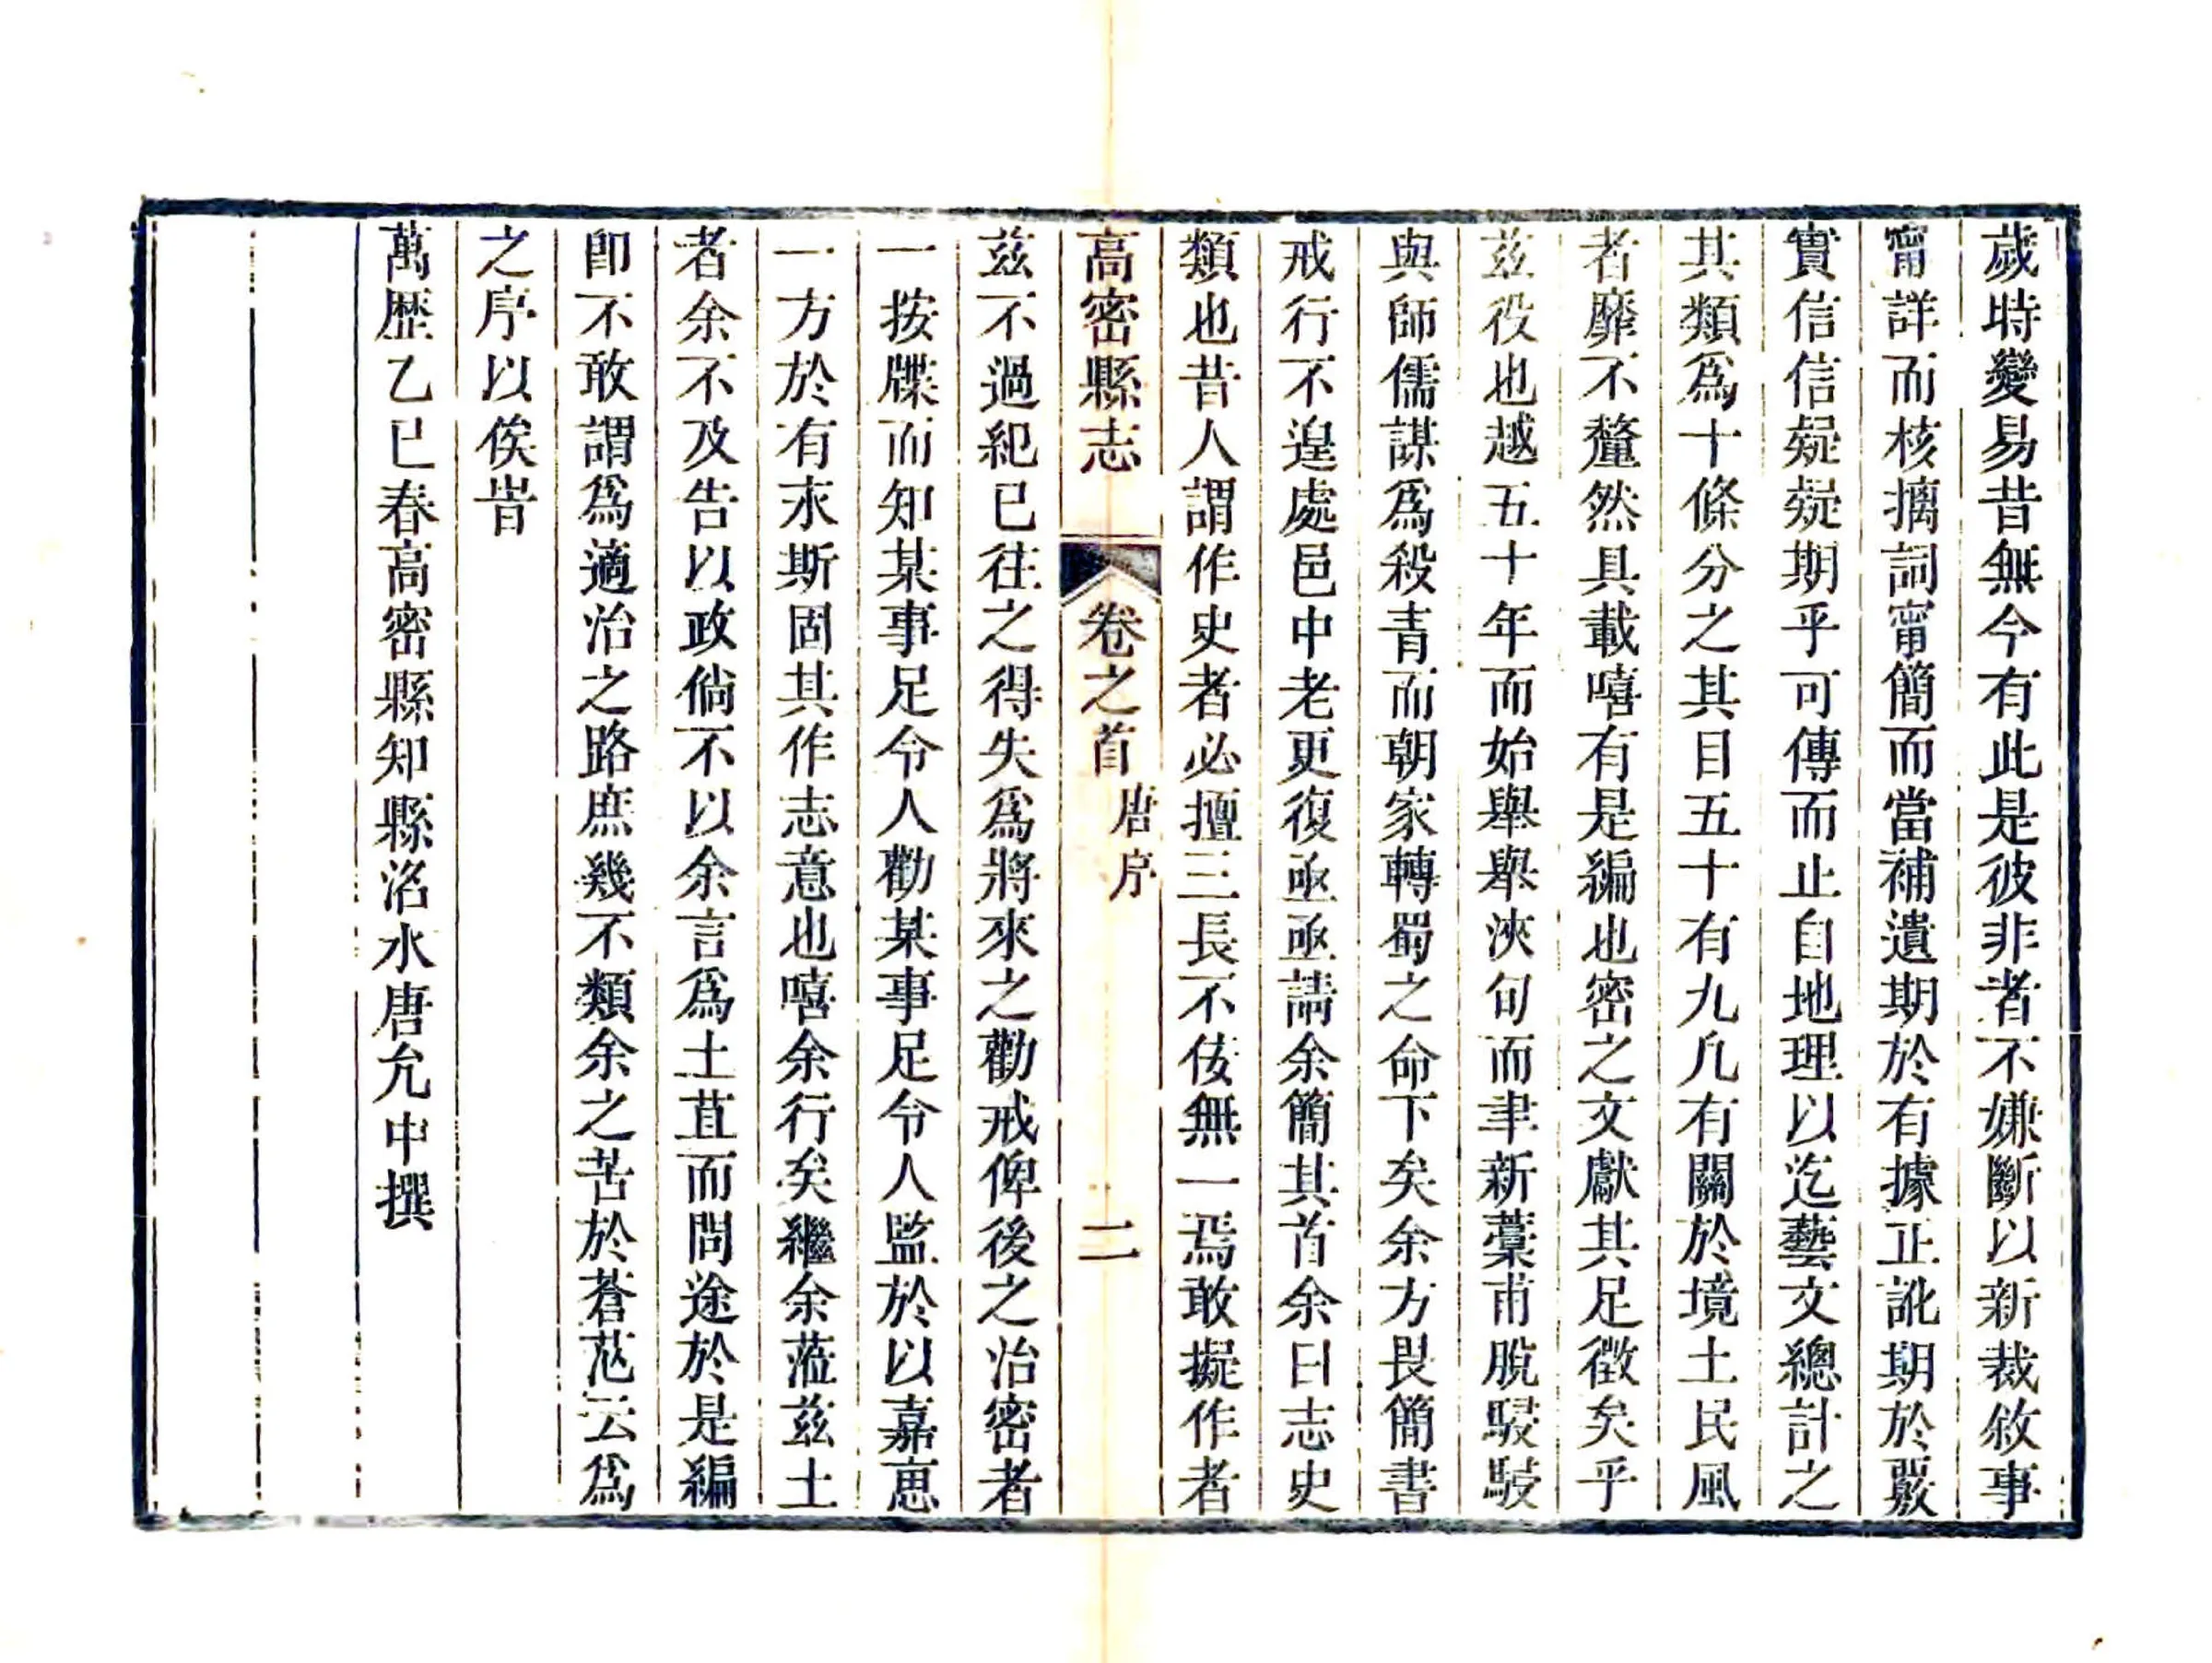 歲時變易昔無今有此是彼非者不嫌斷以新裁敘事
甯詳而核摛詞甯簡而當補遺期於有據正訛期於覈
實信信疑疑期乎可傳而止自地理以迄藝文總計之
其類爲十條分之其目五十有九凡有關於境土民風
者靡不釐然具載嘻有是編也密之文獻其足徵矣乎
茲役也越五十年而始舉舉浹旬而聿新藁甫脫駸駸
與師儒謀爲殺青而朝家轉蜀之命下矣余方畏簡書
戒行不遑處邑中老更復亟亟請余簡其首余曰志史
類也昔人謂作史者必擅三長不佞無一焉敢擬作者
高密縣志 卷之首 唐序 二
茲不過紀已往之得失爲將來之勸戒俾後之治密者
一按牒而知某事足令人勸某事足令人監於以嘉恵
一方於有永斯固其作志意也嘻余行矣繼余蒞茲土
者余不及告以政倘不以余言爲土苴而問途於是編
卽不敢謂爲適治之路庶幾不類余之苦於蒼茫云爲
之序以俟旹
萬歴乙巳春高密縣知縣洺水唐允中撰